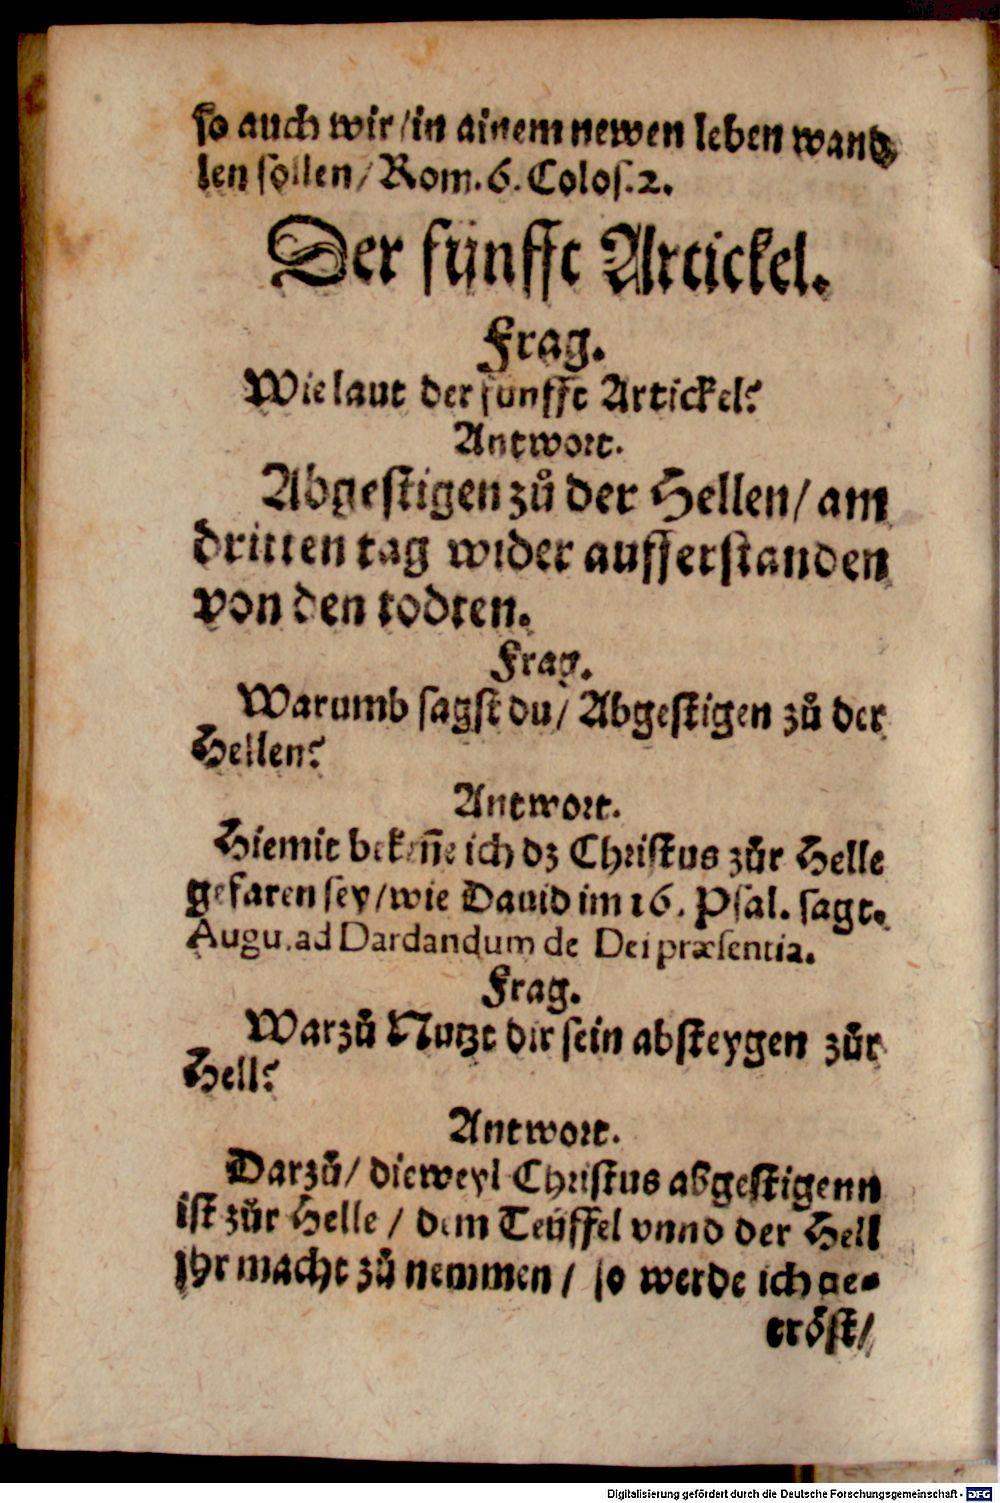 so auch wir / in ainem newen leben wand⸗
len sollen / Rom. 6. Colos. 2.
Der fünfft Artickel.
Frag.
Wie laut der fünfft Artickel?
Antwort.
Abgestigen zů der Hellen / am
dritten tag wider aufferstanden
von den todten.
Frag.
Warumb sagst du / Abgestigen zů der
Hellen?
Antwort.
Hiemit bekeñe ich dz Christus zůr Helle
gefaren sey / wie Dauid im 16. Psal. sagt.
Augu. ad Dardandum de Dei præsentia.
Frag.
Warzů Nutzt dir sein absteygen zůr
Hell?
Antwort.
Darzů / dieweyl Christus abgestigenn
ist zůr Helle / dem Teüffel vnnd der Hell
jhr macht zů nemmen / so werde ich ge⸗
tröst /
Digitalisierung gefördert durch die Deutsche Forschungsgemeinschaft - DFG